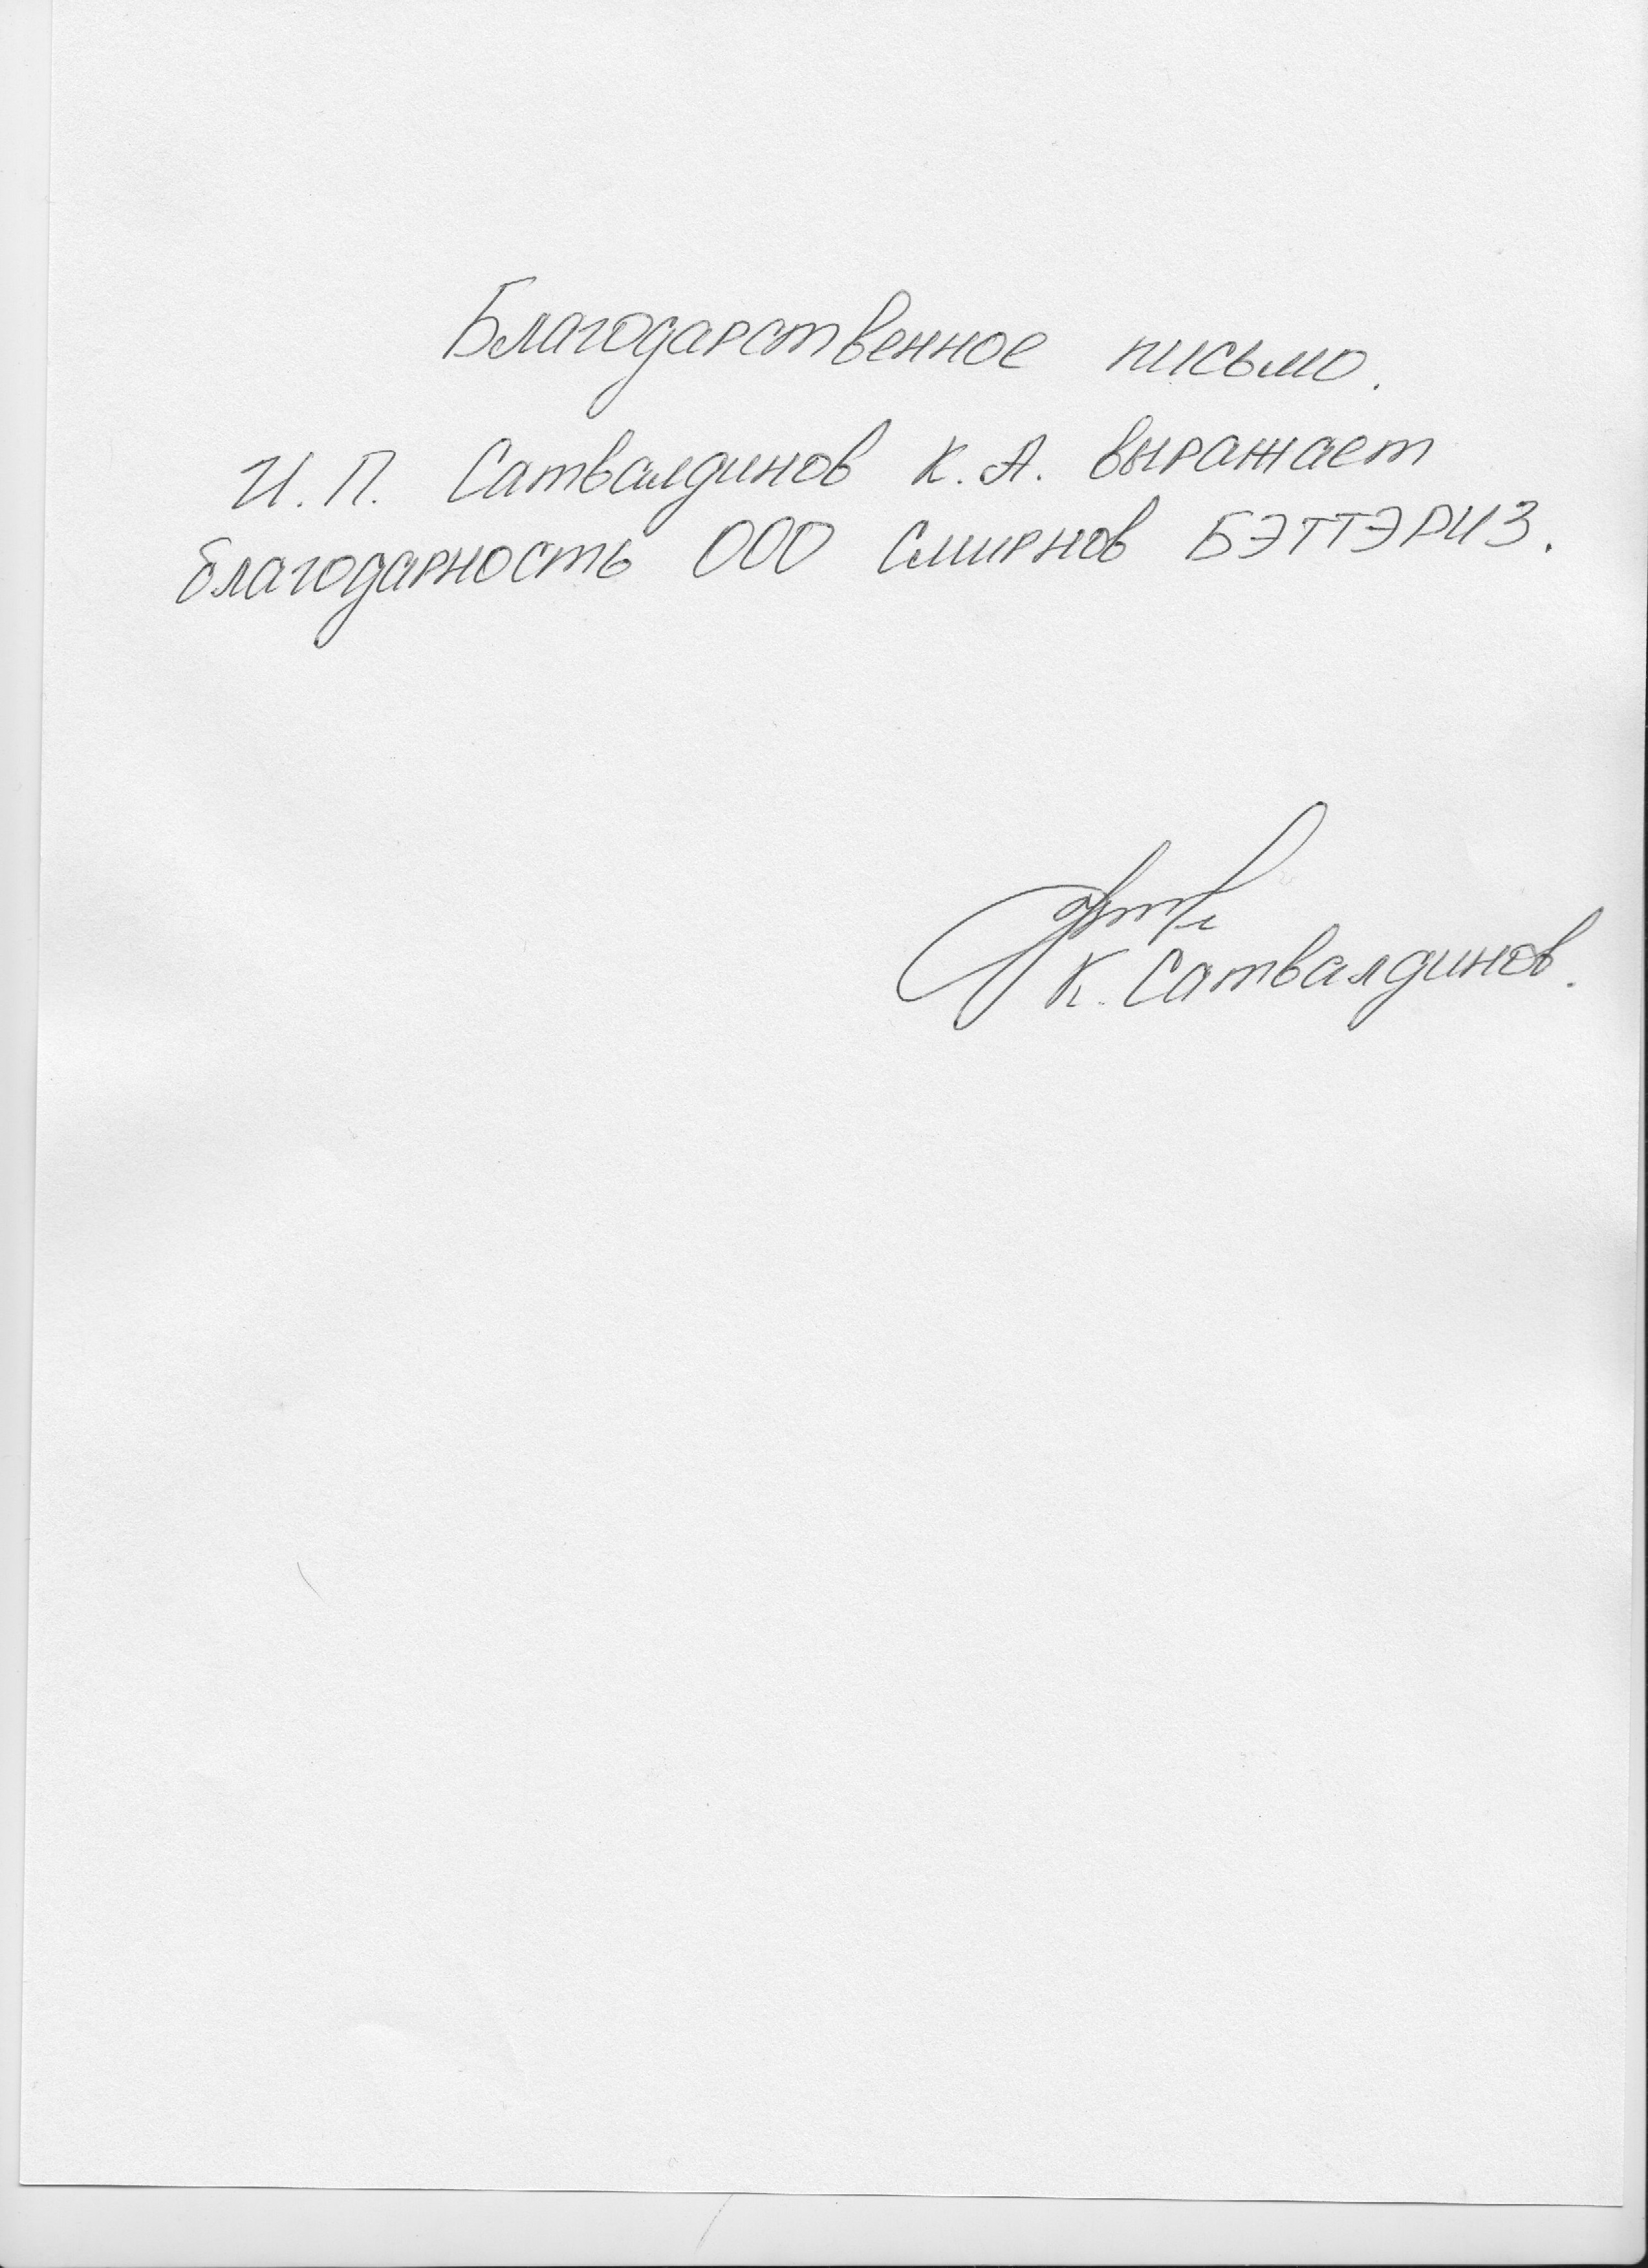 Благодарственное письмо.
И. П. Сатвалдинов К. А. выражает
благодарность ООО Смирнов БЭТТЭРИЗ.
К. Сатвалдинов.